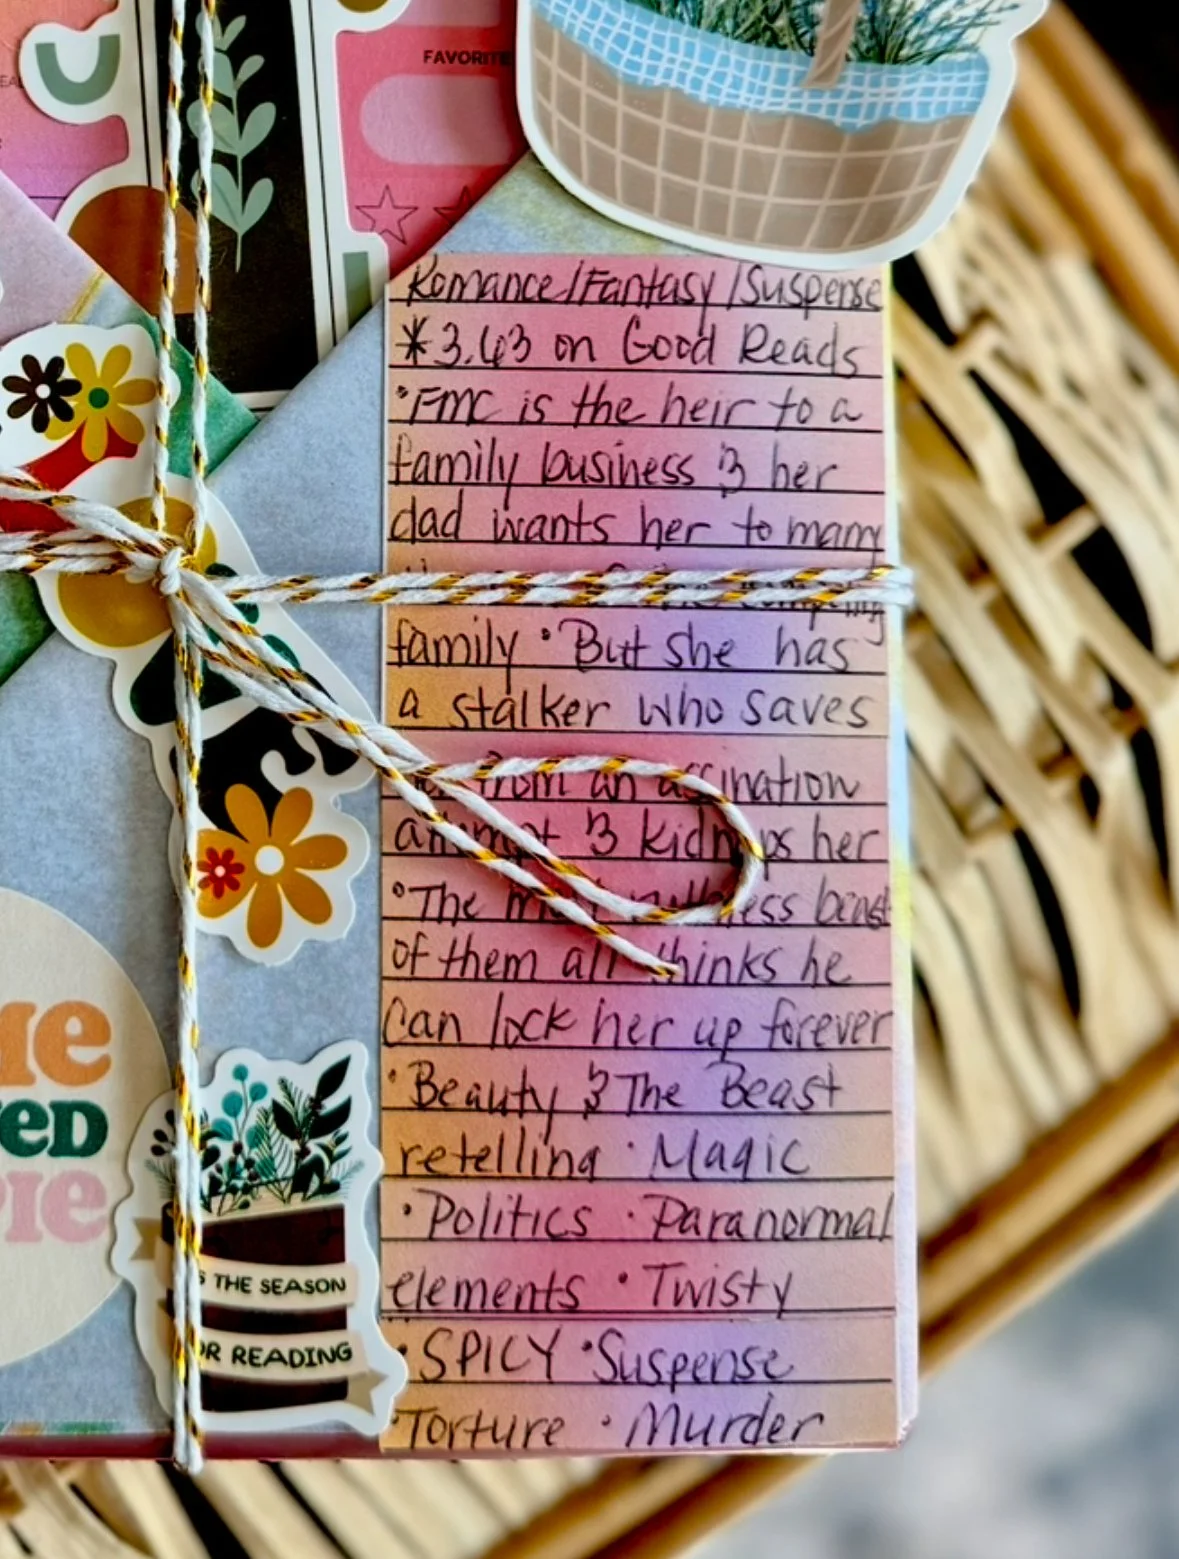 FAVORITE
Romance/Fantasy/Suspense
*3.63 on Good Reads
•FMC is the heir to a
family business & her
dad wants her to marry
family •But she has
a stalker who saves
from an assination
attempt & kidnaps her
•The most ruthless beast
of them all thinks he
can lock her up forever
•Beauty & The Beast
retelling •Magic
•Politics •Paranormal
elements •Twisty
•SPICY •Suspense
•Torture •Murder
THE SEASON
OR READING